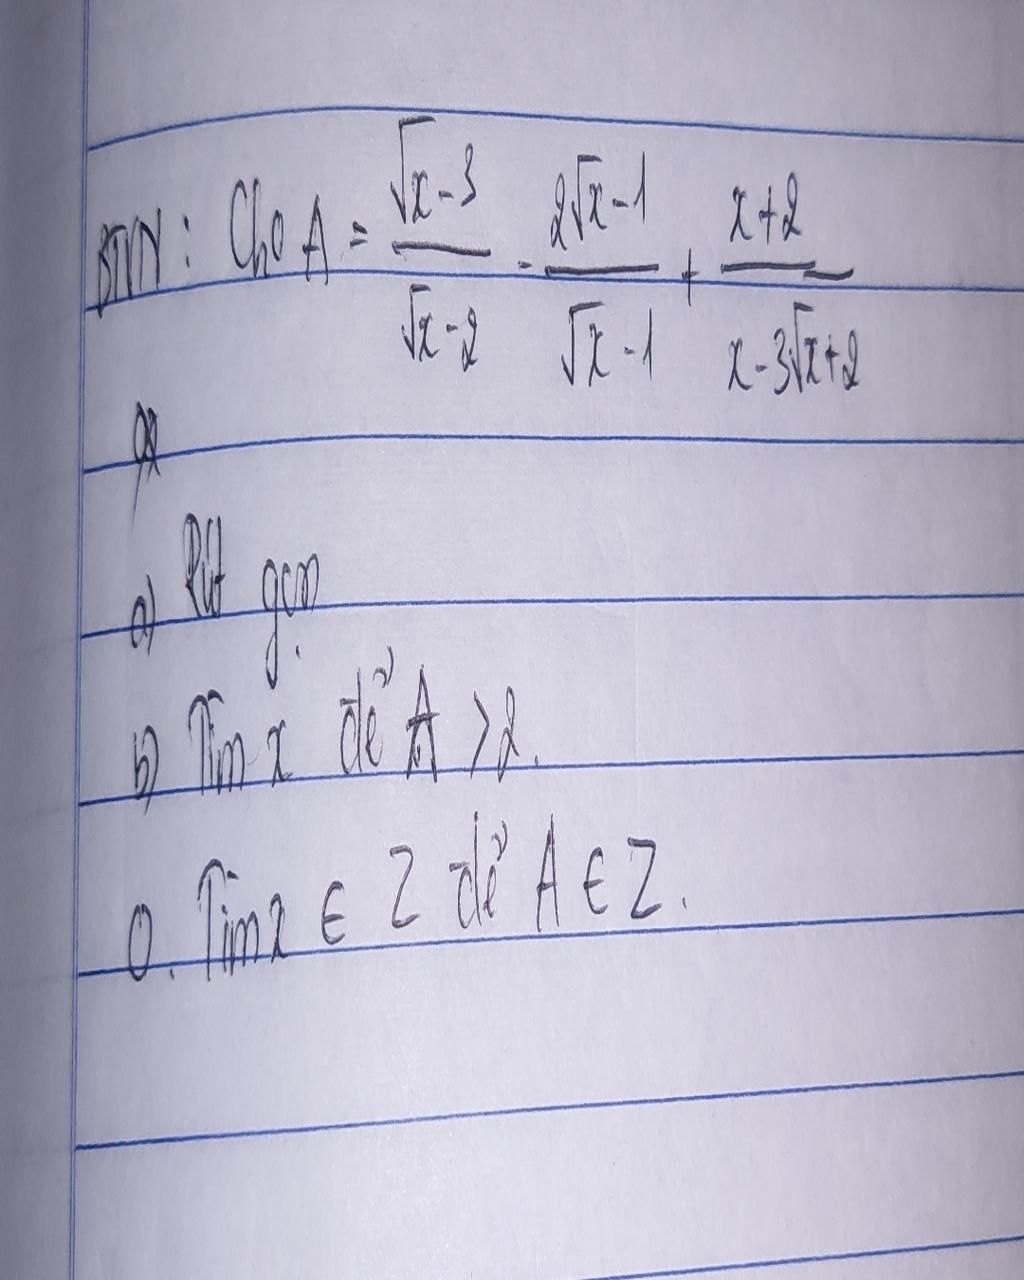 BTVN : Cho A = \frac{\sqrt{x}-3}{\sqrt{x}-2} - \frac{2\sqrt{x}-1}{\sqrt{x}-1} + \frac{x+2}{x-3\sqrt{x}+2}
a) Rút gọn
b) Tìm x để A >2.
c. Tìm x ∈ Z để A ∈ Z.